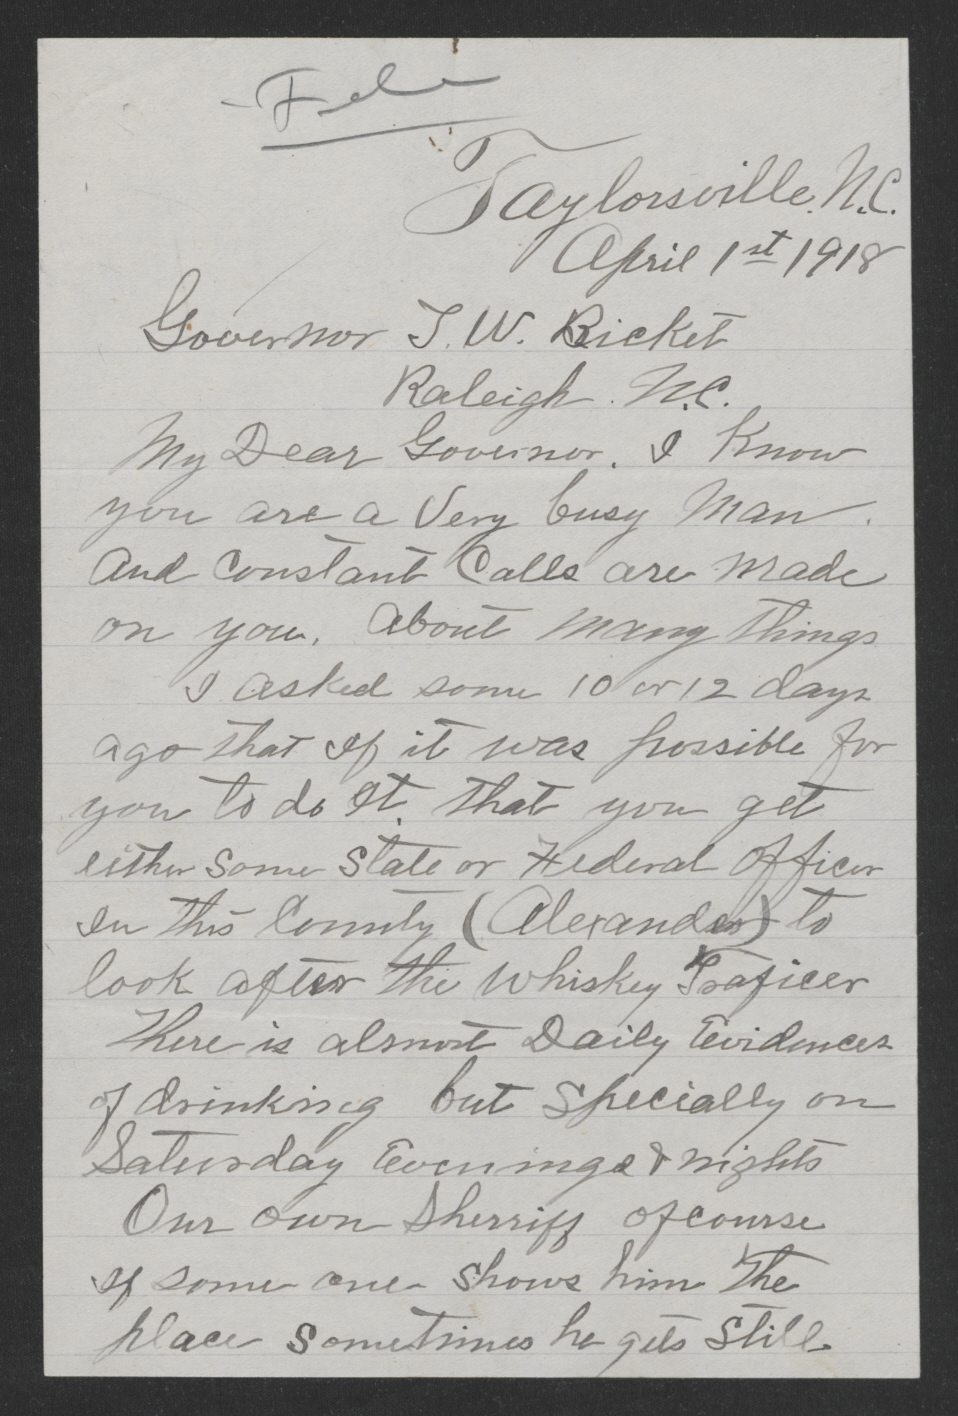 File
Taylorsville, N.C.
April 1st 1918
Governor T. W. Bicket
Raleigh. N.C.
My Dear Governor. I Know
you are a Very busy Man.
And Constant Calls are made
on you. About many things
I asked some 10 or 12 days
ago that If it was possible for
you to do It. that you get
either Some State or Federal Officer
In this County (Alexander) to
look after the Whiskey Traficer
There is almost Daily Evidences
of drinking but Specially on
Saturday Evenings & nights
Our own Sherriff ofcourse
If some one shows him the
place Sometimes he gets Still